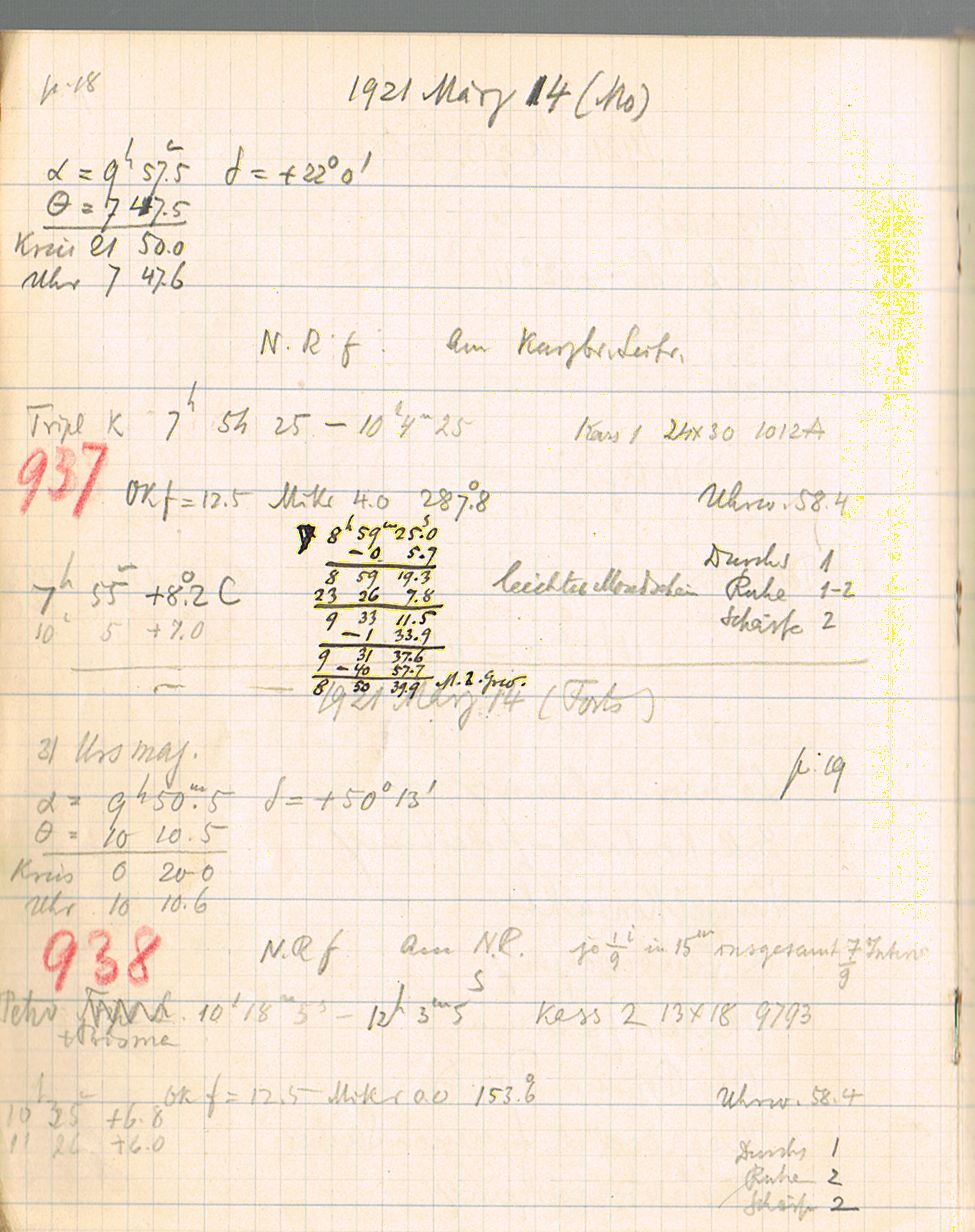 p. 18
1921 März 14 (Mo)
α = 9h 57m.5 δ = +22° 0'
θ = 7 47.5
Kreis 21 50.0
Uhr 7 47.6
N. R. f. Am
Tripl K 7h 54 25 – 10h 4m 25 Kass 1 24x30 1012A
937
OK f = 12.5 Mikr 4.0 287°.8 Uhrw. 58.4
8h 59m 25s.0
– 0 5.7
8 59 19.3
23 26 7.8
9 33 11.5
– 1 33.9
9 31 37.6
– 40 57.7
8 50 39.9 M. Z. Grw.
7h 55m +8°.2 C leichter Mondschein
10h 5 +7.0
Durchs 1
Ruhe 1-2
Schärfe 2
1921 März 14 (Forts)
p. 19
31 Urs maj.
α = 9h 50m.5 δ = +50° 13'
θ = 10 10.5
Kreis 0 20.0
Uhr 10 10.6
938
N.R f Am N.R. je 1/9 i in 15m insgesamt 7/9
Petz 10h 18m 5s – 12h 3m 5s Kass 2 13x18 9793
+ Prisma
OK f = 12.5 Mikr 0.0 153°.6 Uhrw. 58.4
10h 25m +6.8
11 26 +6.0
Durchs 1
Ruhe 2
Schärfe 2